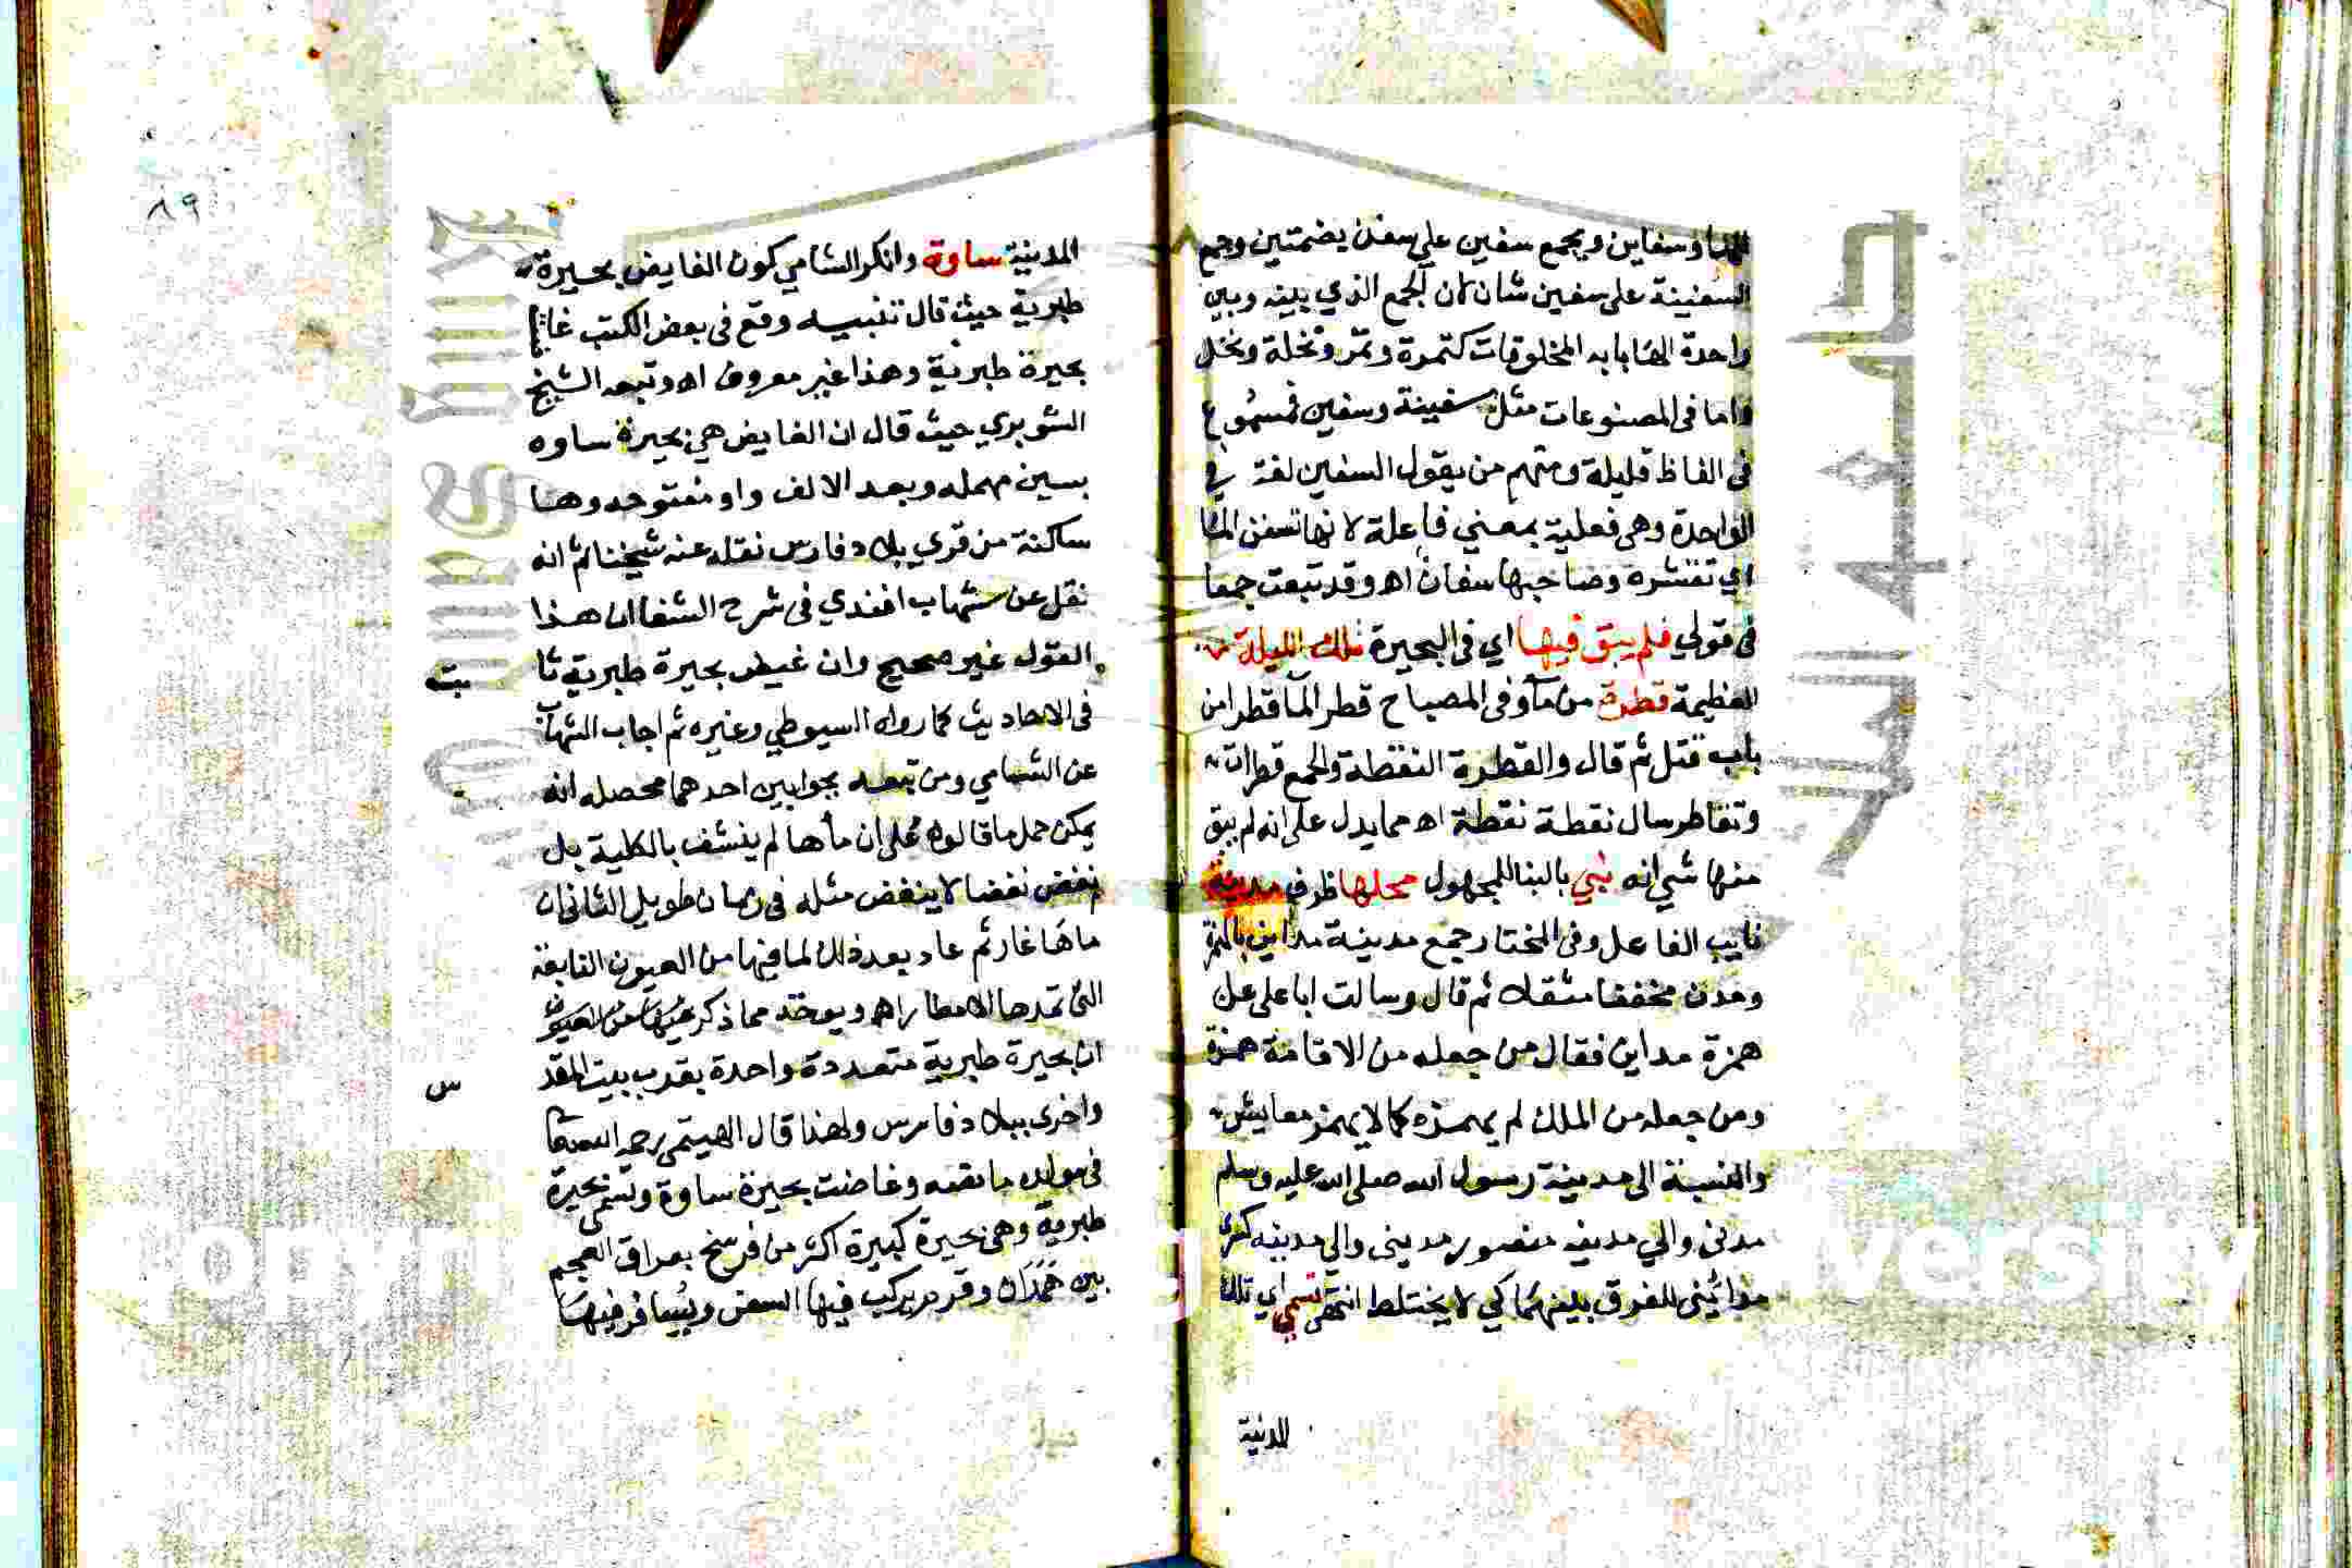 الها وسفاين ويجمع سفين على سفن بضمتين وجمع
السفينة على سفين شان لان الجمع الذي بينه وبين
واحدة الها بابه المخلوقات كتمرة وتمر ونخلة ونخل
واما في المصنوعات مثل سفينة وسفين فمسموع
في الفاظ قليلة ومنهم من يقول السفين لغة في
الواحدة وهي فعلية بمعني فاعلة لانها تسفن الما
اي تقشره وصاحبها سفان اه وقد تبعت جمعا
في قولي فلم يبق فيها اي في البحيرة تلك الليلة
العظيمة قطرة من مآ وفي المصباح قطر المآ قطرا من
باب قتل ثم قال والقطرة النقطة والجمع قطرات
وتقاطر سال نقطة نقطة اه مما يدل على انه لم يبق
منها شي انه بني بالبنا للمجهول محلها ظرف مدينة
نايب الفاعل وفي المختار جمع مدينة مداين بالهمزة
ومدن مخففا مثقلا ثم قال وسالت ابا على عن
همزة مداين فقال من جعله من الاقامة همزة
ومن جعله من الملك لم يهمزه كما لا يهمز معايش
والنسبة الى مدينة رسول الله صلى الله عليه وسلم
مدني والي مدينه منصور مديني والي مدينه كسرى
مدائيني للفرق بينهما كي لا يختلط انتهى تسمي اي تلك
المدنية
٨٩
المدنية ساوة وانكر الشامي كون الغايض بحيرة
طبرية حيث قال تنبيه وقع في بعض الكتب غاضة
بحيرة طبرية وهذا غير معروف اه وتبعه الشيخ
الشوبري حيث قال ان الغايض هي بحيرة ساوه
بسين مهمله وبعد الالف واو مفتوحه وها
ساكنة من قري بلاد فارس نقله عنه شيخنا ثم انه
نقل عن شهاب افندي في شرح الشفا ان هذا
القول غير صحيح وان غيض بحيرة طبرية ثا بت
في الاحاديث كما رواه السيوطي وغيره ثم اجاب الشهاب
عن الشامي ومن تبعه بجوابين احدهما محصله انه
يمكن حمل ما قالوه على ان مأها لم ينشف بالكلية بل
نقص نقصا لا ينقص مثله في زمان طويل الثاني ان
ماها غار ثم عاد بعد ذلك لما فيها من العيون النابعة
التي تمدها الامطار اه ويوخذ مما ذكر
ان بحيرة طبرية متعددة واحدة بقرب بيت المقد س
واخرى ببلاد فارس ولهذا قال الهيتمي رحمه الله تعالى
في مولده ما نصه وغاضت بحيرة ساوة وتسمى بحيرة
طبرية وهي بحيرة كبيرة اكثر من فرسخ بعراق العجم
بين همدان وقم يركب فيها السفن ويسافر فيها